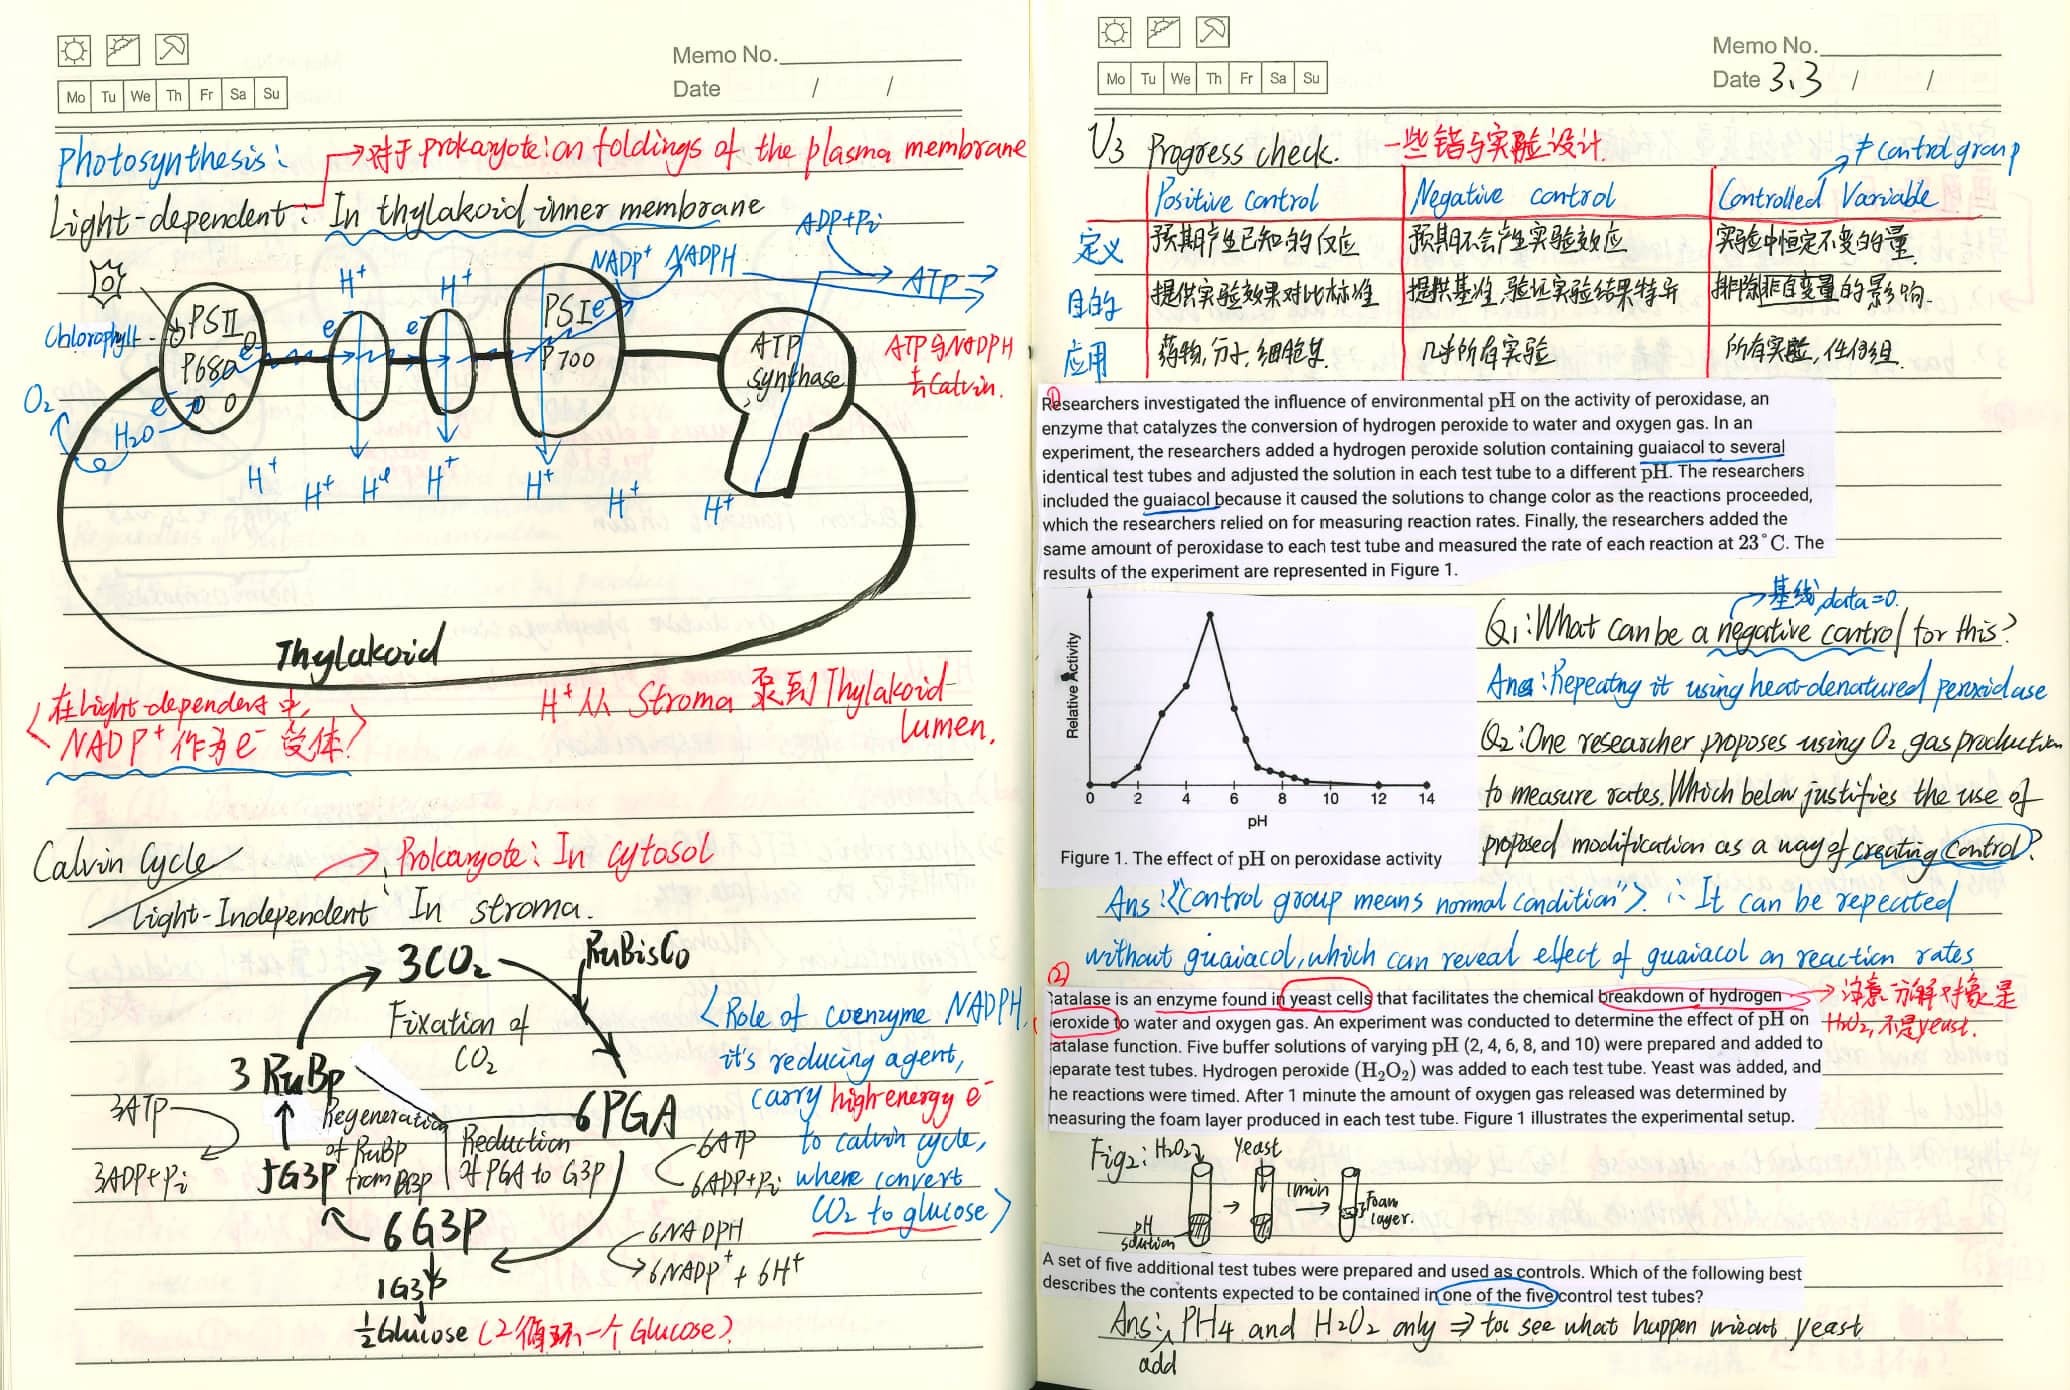 Memo No.
Date / /
Mo Tu We Th Fr Sa Su
Photosynthesis:
→对于prokaryote:on foldings of the plasma membrane
Light-dependent: In thylakoid inner membrane
ADP+Pi
NADP⁺ NADPH
ATP
H⁺ H⁺
Chlorophyll
PSII
P680
e⁻ e⁻ e⁻ e⁻
PSI
P700
ATP
synthase
ATP与NADPH
去Calvin.
O₂
e⁻
H₂O
H⁺ H⁺ H⁺ H⁺ H⁺ H⁺ H⁺
Thylakoid
H⁺从 Stroma 泵到 Thylakoid
lumen.
<在Light-dependent中,
NADP⁺作为e⁻受体>
Calvin Cycle
→ Prokaryote: In cytosol
Light-Independent: In stroma.
3CO₂
RuBisCo
Fixation of
CO₂
3 RuBp
6PGA
3ATP
3ADP+Pi
Regeneration
of RuBP
from G3P
Reduction
of PGA to G3P
6ATP
6ADP+Pi
5G3P
6G3P
6NADPH
6NADP⁺ + 6H⁺
1G3P
½Glucose (2循环一个Glucose)
<Role of coenzyme NADPH,
it's reducing agent,
carry high-energy e⁻
to calvin cycle,
where convert
CO₂ to glucose>
Memo No.
Date 3.3 / /
Mo Tu We Th Fr Sa Su
U3 Progress check. 一些错与实验设计.
≠ control group
Positive control Negative control Controlled Variable
定义 预期产生已知的反应 预期不会产生实验效应 实验中恒定不变的量.
目的 提供实验效果对比标准 提供基准,验证实验结果特异 排除非自变量的影响.
应用 药物,分子,细胞等. 几乎所有实验 所有实验,任何组.
①
Researchers investigated the influence of environmental pH on the activity of peroxidase, an
enzyme that catalyzes the conversion of hydrogen peroxide to water and oxygen gas. In an
experiment, the researchers added a hydrogen peroxide solution containing guaiacol to several
identical test tubes and adjusted the solution in each test tube to a different pH. The researchers
included the guaiacol because it caused the solutions to change color as the reactions proceeded,
which the researchers relied on for measuring reaction rates. Finally, the researchers added the
same amount of peroxidase to each test tube and measured the rate of each reaction at 23°C. The
results of the experiment are represented in Figure 1.
Relative Activity
0 2 4 6 8 10 12 14
pH
Figure 1. The effect of pH on peroxidase activity
→基线,data=0.
Q1:What can be a negative control for this?
Ans:Repeatng it using heat-denatured peroxidase
Q2:One researcher proposes using O₂ gas production
to measure rates. Which below justifies the use of
proposed modification as a way of creating control?
Ans:《"Control group means normal condition"》. ∴ It can be repeated
without guaiacol, which can reveal effect of guaiacol on reaction rates
②
atalase is an enzyme found in yeast cells that facilitates the chemical breakdown of hydrogen
eroxide to water and oxygen gas. An experiment was conducted to determine the effect of pH on
atalase function. Five buffer solutions of varying pH (2, 4, 6, 8, and 10) were prepared and added to
eparate test tubes. Hydrogen peroxide (H₂O₂) was added to each test tube. Yeast was added, and
he reactions were timed. After 1 minute the amount of oxygen gas released was determined by
neasuring the foam layer produced in each test tube. Figure 1 illustrates the experimental setup.
→ 注意:分解对象是
H₂O₂,不是yeast.
Fig2: H₂O₂ Yeast
→ 1min →
Foam
layer.
pH
solution
A set of five additional test tubes were prepared and used as controls. Which of the following best
describes the contents expected to be contained in one of the five control test tubes?
Ans: PH4 and H₂O₂ only ⇒ to see what happen without yeast
add